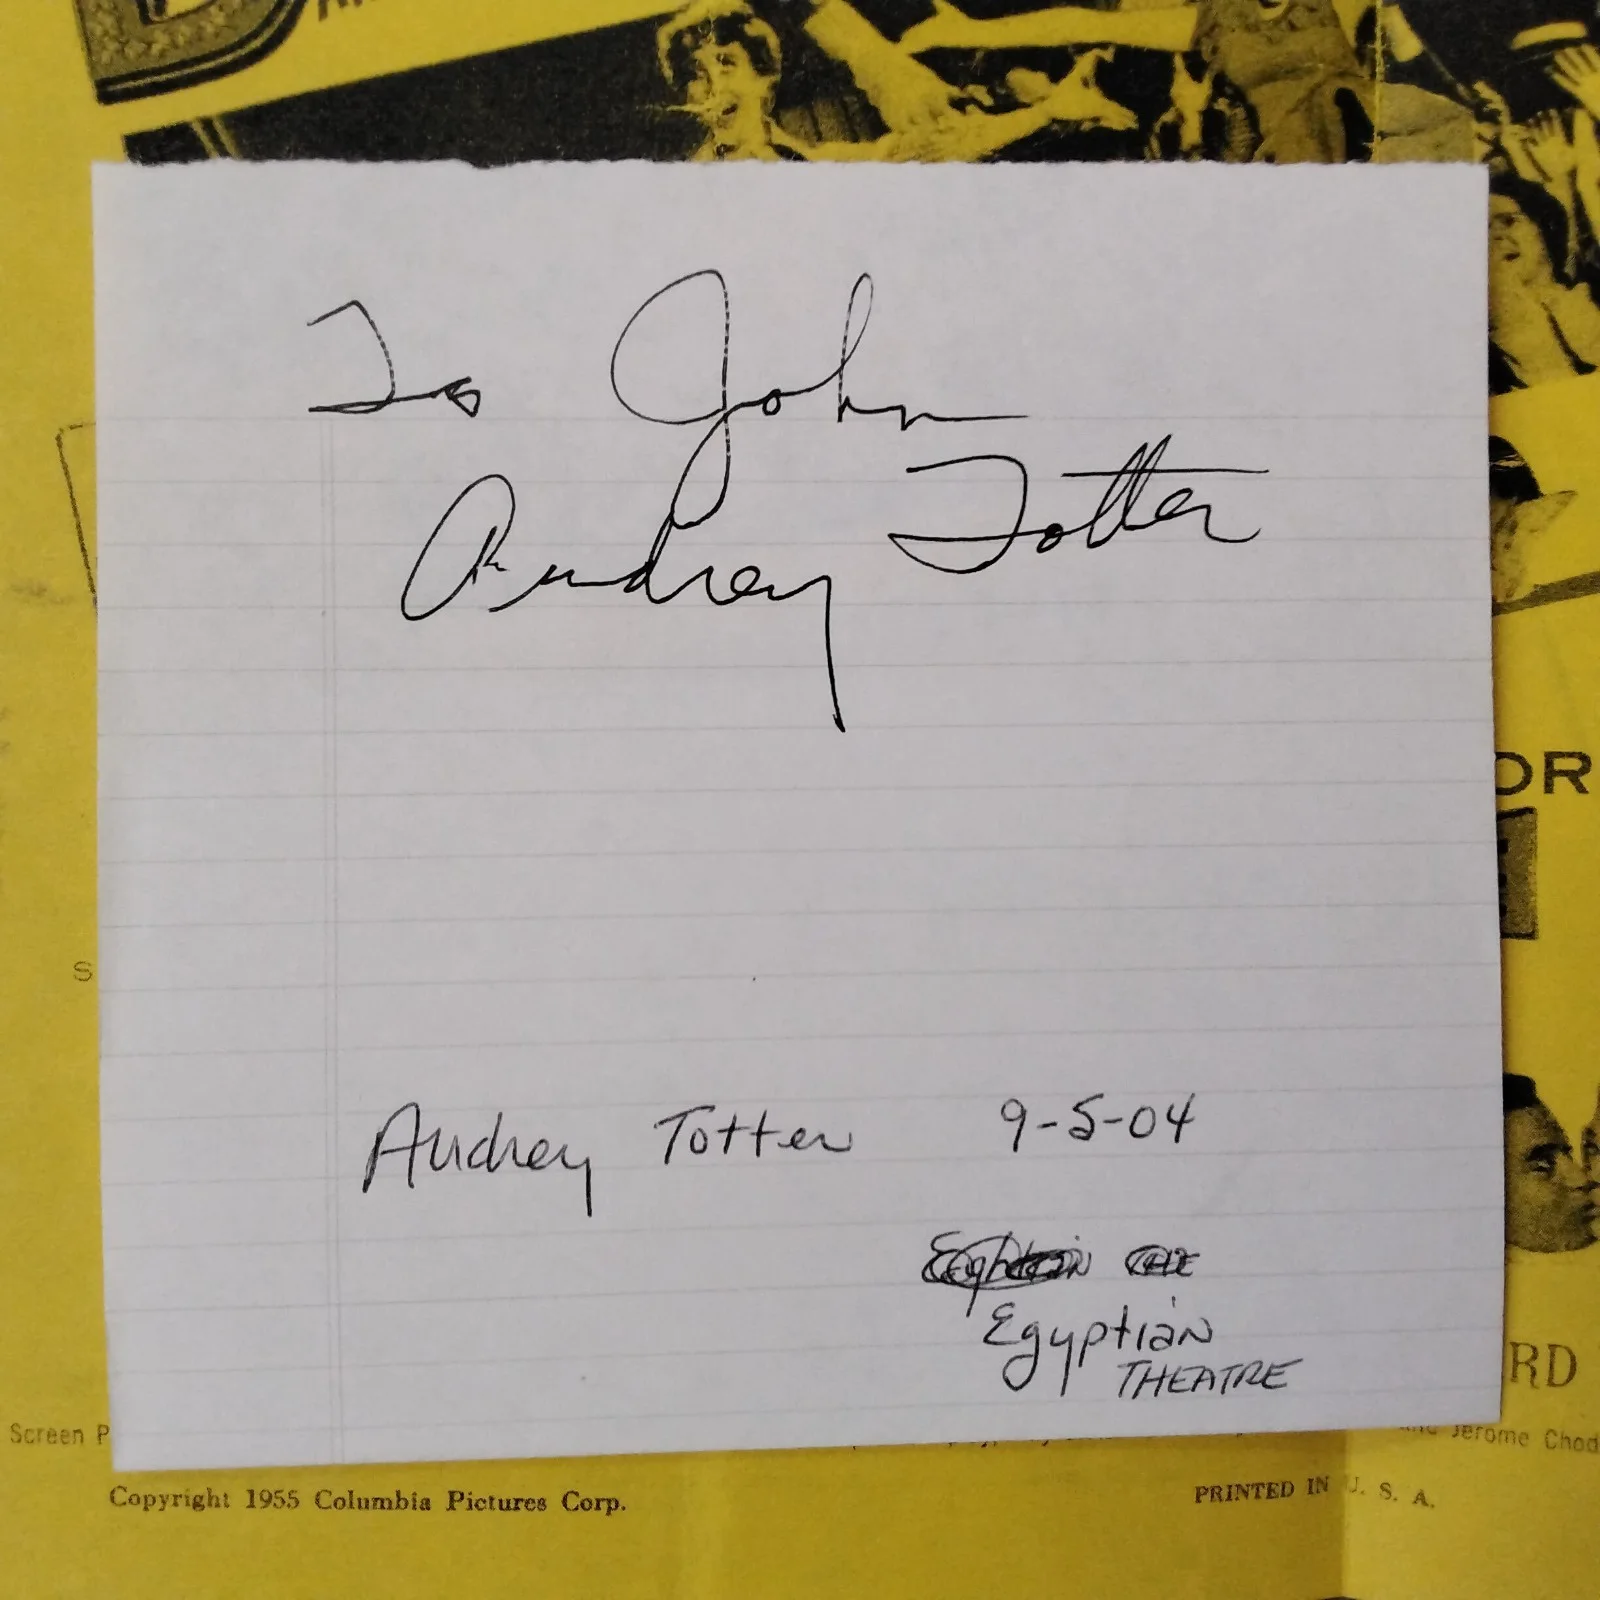 To John
Audrey Totter
OR
S
Audrey Totter 9-5-04
Egyptian THE
Egyptian
THEATRE
RD
Screen P
Jerome Chod
Copyright 1955 Columbia Pictures Corp.
PRINTED IN U. S. A.